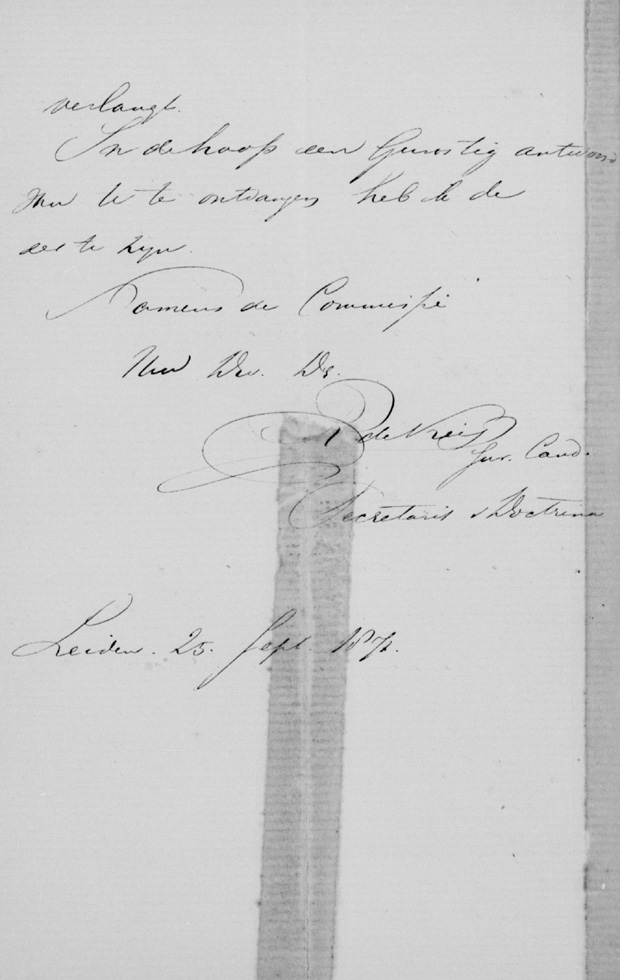 verlangt.
In de hoop een Gunstig antwoord
van U te ontvangen heb ik de
eer te zijn.
Namens de Commissie
Uw Dw. Dr.
de Vries
Jur. Cand.
Secretaris v Doctrina
Leiden. 25. Sept. 187